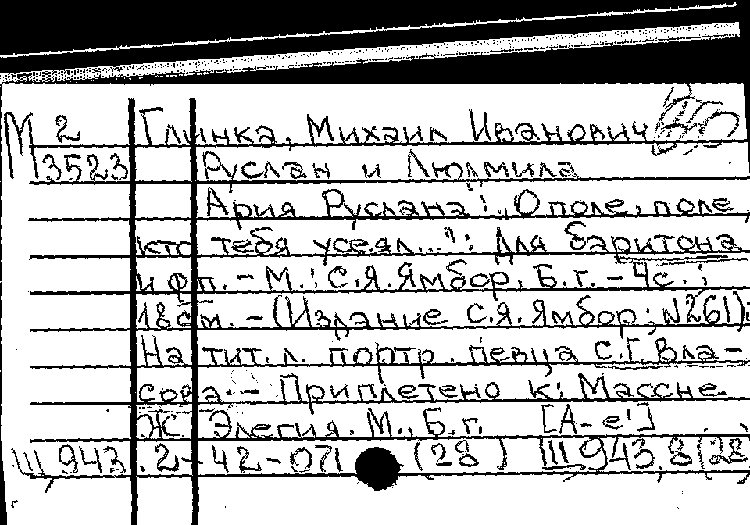 М 2 Глинка, Михаил Иванович
3523 Руслан и Людмила
Ария Руслана: „О поле, поле,
кто тебя усеял..."; Для баритона
и фп. - М.: С.Я. Ямбор, Б.г. - 4с.;
18см. - (Издание С.Я. Ямбор; №261).
На тит. л. портр. певца С.Г. Вла-
сова. - Приплетено к: Массне.
Ж. Элегия. М., Б.г. [A-e']
Ш 943.2-42-071 (28) Ш 943,8(28)